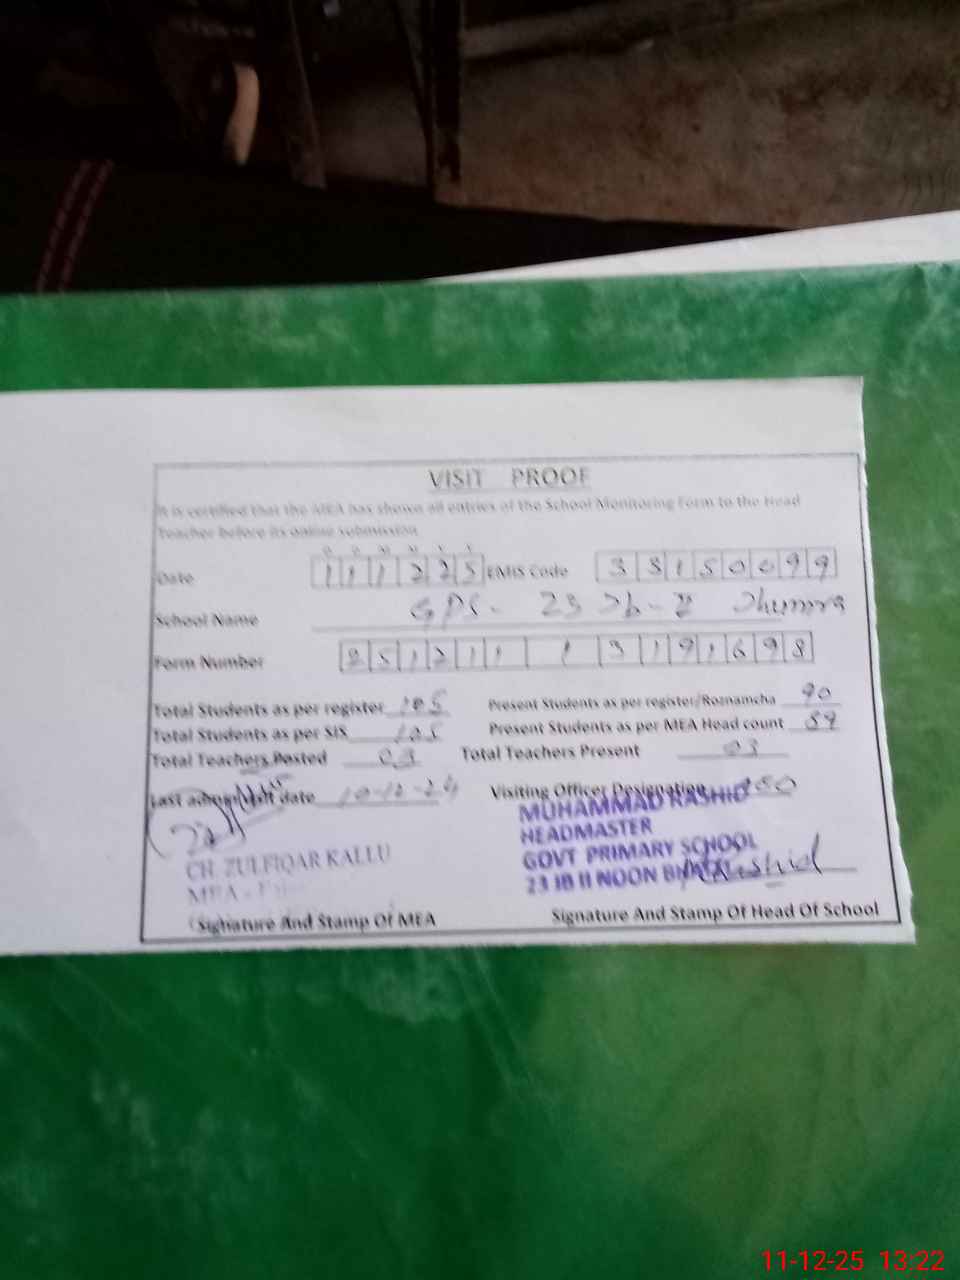 VISIT PROOF
It is certified that the MEA has shown all entries of the School Monitoring Form to the Head
Teacher before its online submission
Date 111225 EMIS Code 33150099
School Name GPS - 23 Jb-II Jhumra
Form Number 251211 1 3191698
Total Students as per register 105 Present Students as per register/Roznamcha 90
Total Students as per SIS 105 Present Students as per MEA Head count 89
Total Teachers Posted 03 Total Teachers Present 03
Last admin visit date 10-12-24 Visiting Officer Designation
MUHAMMAD RASHID
HEADMASTER
GOVT PRIMARY SCHOOL
23 JB II NOON Rashid
CH. ZULFIQAR KALLU
MEA -
Signature And Stamp Of MEA Signature And Stamp Of Head Of School
11-12-25 13:22